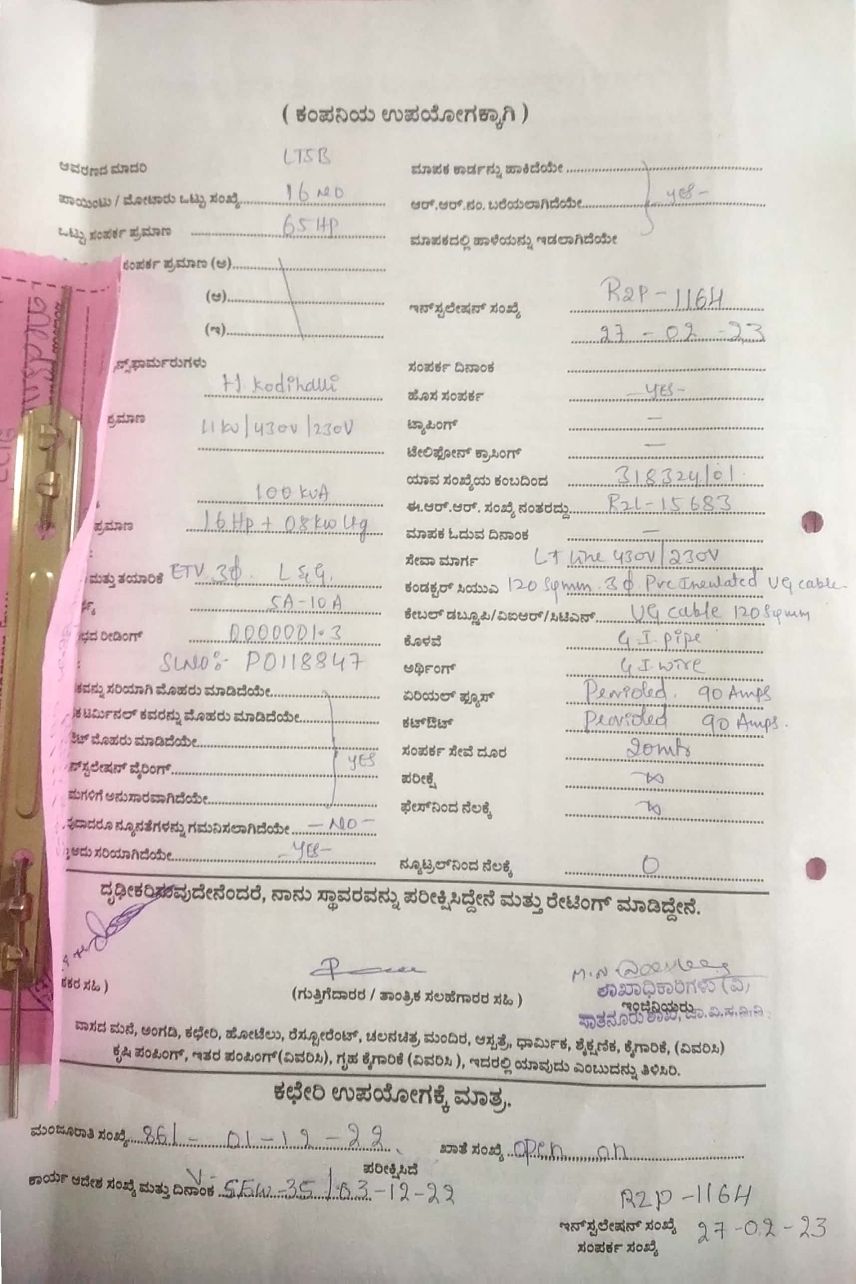 ( ಕಂಪನಿಯ ಉಪಯೋಗಕ್ಕಾಗಿ )
ಆವರಣದ ಮಾದರಿ LT5B
ಪಾಯಿಂಟು / ಮೋಟಾರು ಒಟ್ಟು ಸಂಖ್ಯೆ 16 NO
ಒಟ್ಟು ಸಂಪರ್ಕ ಪ್ರಮಾಣ 65 HP
ಸಂಪರ್ಕ ಪ್ರಮಾಣ (ಅ)
(ಆ)
(ಇ)
ಫಾರ್ಮರುಗಳು
H Kodihalli
ಪ್ರಮಾಣ 11 KV/430V/230V
100 KVA
ಪ್ರಮಾಣ 16 Hp + 08 KW Ltg
ಮತ್ತು ತಯಾರಿಕೆ ETV 3φ. L&G.
5A-10A
ರೀಡಿಂಗ್ 000001.3
SLNO:- P0118847
ಸರಿಯಾಗಿ ಮೊಹರು ಮಾಡಿದೆಯೇ
ಕವರನ್ನು ಮೊಹರು ಮಾಡಿದೆಯೇ
ಮೊಹರು ಮಾಡಿದೆಯೇ
ವೈರಿಂಗ್ YES
ಅನುಸಾರವಾಗಿದೆಯೇ
ನ್ಯೂನತೆಗಳನ್ನು ಗಮನಿಸಲಾಗಿದೆಯೇ -NO-
ಅದು ಸರಿಯಾಗಿದೆಯೇ -YES-
ಮಾಪಕ ಕಾರ್ಡನ್ನು ಹಾಕಿದೆಯೇ
ಆರ್.ಆರ್.ನಂ. ಬರೆಯಲಾಗಿದೆಯೇ YES-
ಮಾಪಕದಲ್ಲಿ ಹಾಳೆಯನ್ನು ಇಡಲಾಗಿದೆಯೇ
ಇನ್‌ಸ್ಟಲೇಷನ್ ಸಂಖ್ಯೆ R2P-1164
27-02-23
ಸಂಪರ್ಕ ದಿನಾಂಕ
ಹೊಸ ಸಂಪರ್ಕ -YES-
ಟ್ಯಾಪಿಂಗ್ —
ಟೆಲಿಫೋನ್ ಕ್ರಾಸಿಂಗ್ —
ಯಾವ ಸಂಖ್ಯೆಯ ಕಂಬದಿಂದ 318324/01.
ಈ.ಆರ್.ಆರ್. ಸಂಖ್ಯೆ ನಂತರದ್ದು R2L-15683
ಮಾಪಕ ಓದುವ ದಿನಾಂಕ —
ಸೇವಾ ಮಾರ್ಗ LT Line 430V/230V
ಕಂಡಕ್ಟರ್ ಸಿಯುಎ 120 Sqmm. 3φ Pvc Insulated UG cable.
ಕೇಬಲ್ ಡಬ್ಲ್ಯೂಪಿ/ವಿಐಆರ್/ಸಿಟಿಎನ್ UG cable 120 Sqmm
ಕೊಳವೆ G.I. pipe
ಅರ್ಥಿಂಗ್ G.I wire
ಏರಿಯಲ್ ಫ್ಯೂಸ್ Provided. 90 Amps
ಕಟ್‌ಔಟ್ Provided 90 Amps.
ಸಂಪರ್ಕ ಸೇವೆ ದೂರ 20mtr
ಪರೀಕ್ಷೆ ∞
ಫೇಸ್‌ನಿಂದ ನೆಲಕ್ಕೆ ∞
ನ್ಯೂಟ್ರಲ್‌ನಿಂದ ನೆಲಕ್ಕೆ 0
ದೃಢೀಕರಿಸುವುದೇನೆಂದರೆ, ನಾನು ಸ್ಥಾವರವನ್ನು ಪರೀಕ್ಷಿಸಿದ್ದೇನೆ ಮತ್ತು ರೇಟಿಂಗ್ ಮಾಡಿದ್ದೇನೆ.
ಸಹಿ )
(ಗುತ್ತಿಗೆದಾರರ / ತಾಂತ್ರಿಕ ಸಲಹೆಗಾರರ ಸಹಿ )
ಶಾಖಾಧಿಕಾರಿಗಳು (ವಿ)
ಇಂಜಿನಿಯರು
ಸಾತನೂರು ಶಾಖೆ,
ವಾಸದ ಮನೆ, ಅಂಗಡಿ, ಕಛೇರಿ, ಹೋಟೆಲು, ರೆಸ್ಟೋರೆಂಟ್, ಚಲನಚಿತ್ರ, ಮಂದಿರ, ಆಸ್ಪತ್ರೆ, ಧಾರ್ಮಿಕ, ಶೈಕ್ಷಣಿಕ, ಕೈಗಾರಿಕೆ, (ವಿವರಿಸಿ)
ಕೃಷಿ ಪಂಪಿಂಗ್, ಇತರ ಪಂಪಿಂಗ್(ವಿವರಿಸಿ), ಗೃಹ ಕೈಗಾರಿಕೆ (ವಿವರಿಸಿ ), ಇದರಲ್ಲಿ ಯಾವುದು ಎಂಬುದನ್ನು ತಿಳಿಸಿರಿ.
ಕಛೇರಿ ಉಪಯೋಗಕ್ಕೆ ಮಾತ್ರ.
ಮಂಜೂರಾತಿ ಸಂಖ್ಯೆ 861-01-12-22 ಖಾತೆ ಸಂಖ್ಯೆ open on
ಪರೀಕ್ಷಿಸಿದೆ
ಕಾರ್ಯ ಆದೇಶ ಸಂಖ್ಯೆ ಮತ್ತು ದಿನಾಂಕ SEW-35/03-12-22
R2P-1164
ಇನ್‌ಸ್ಟಲೇಷನ್ ಸಂಖ್ಯೆ 27-02-23
ಸಂಪರ್ಕ ಸಂಖ್ಯೆ